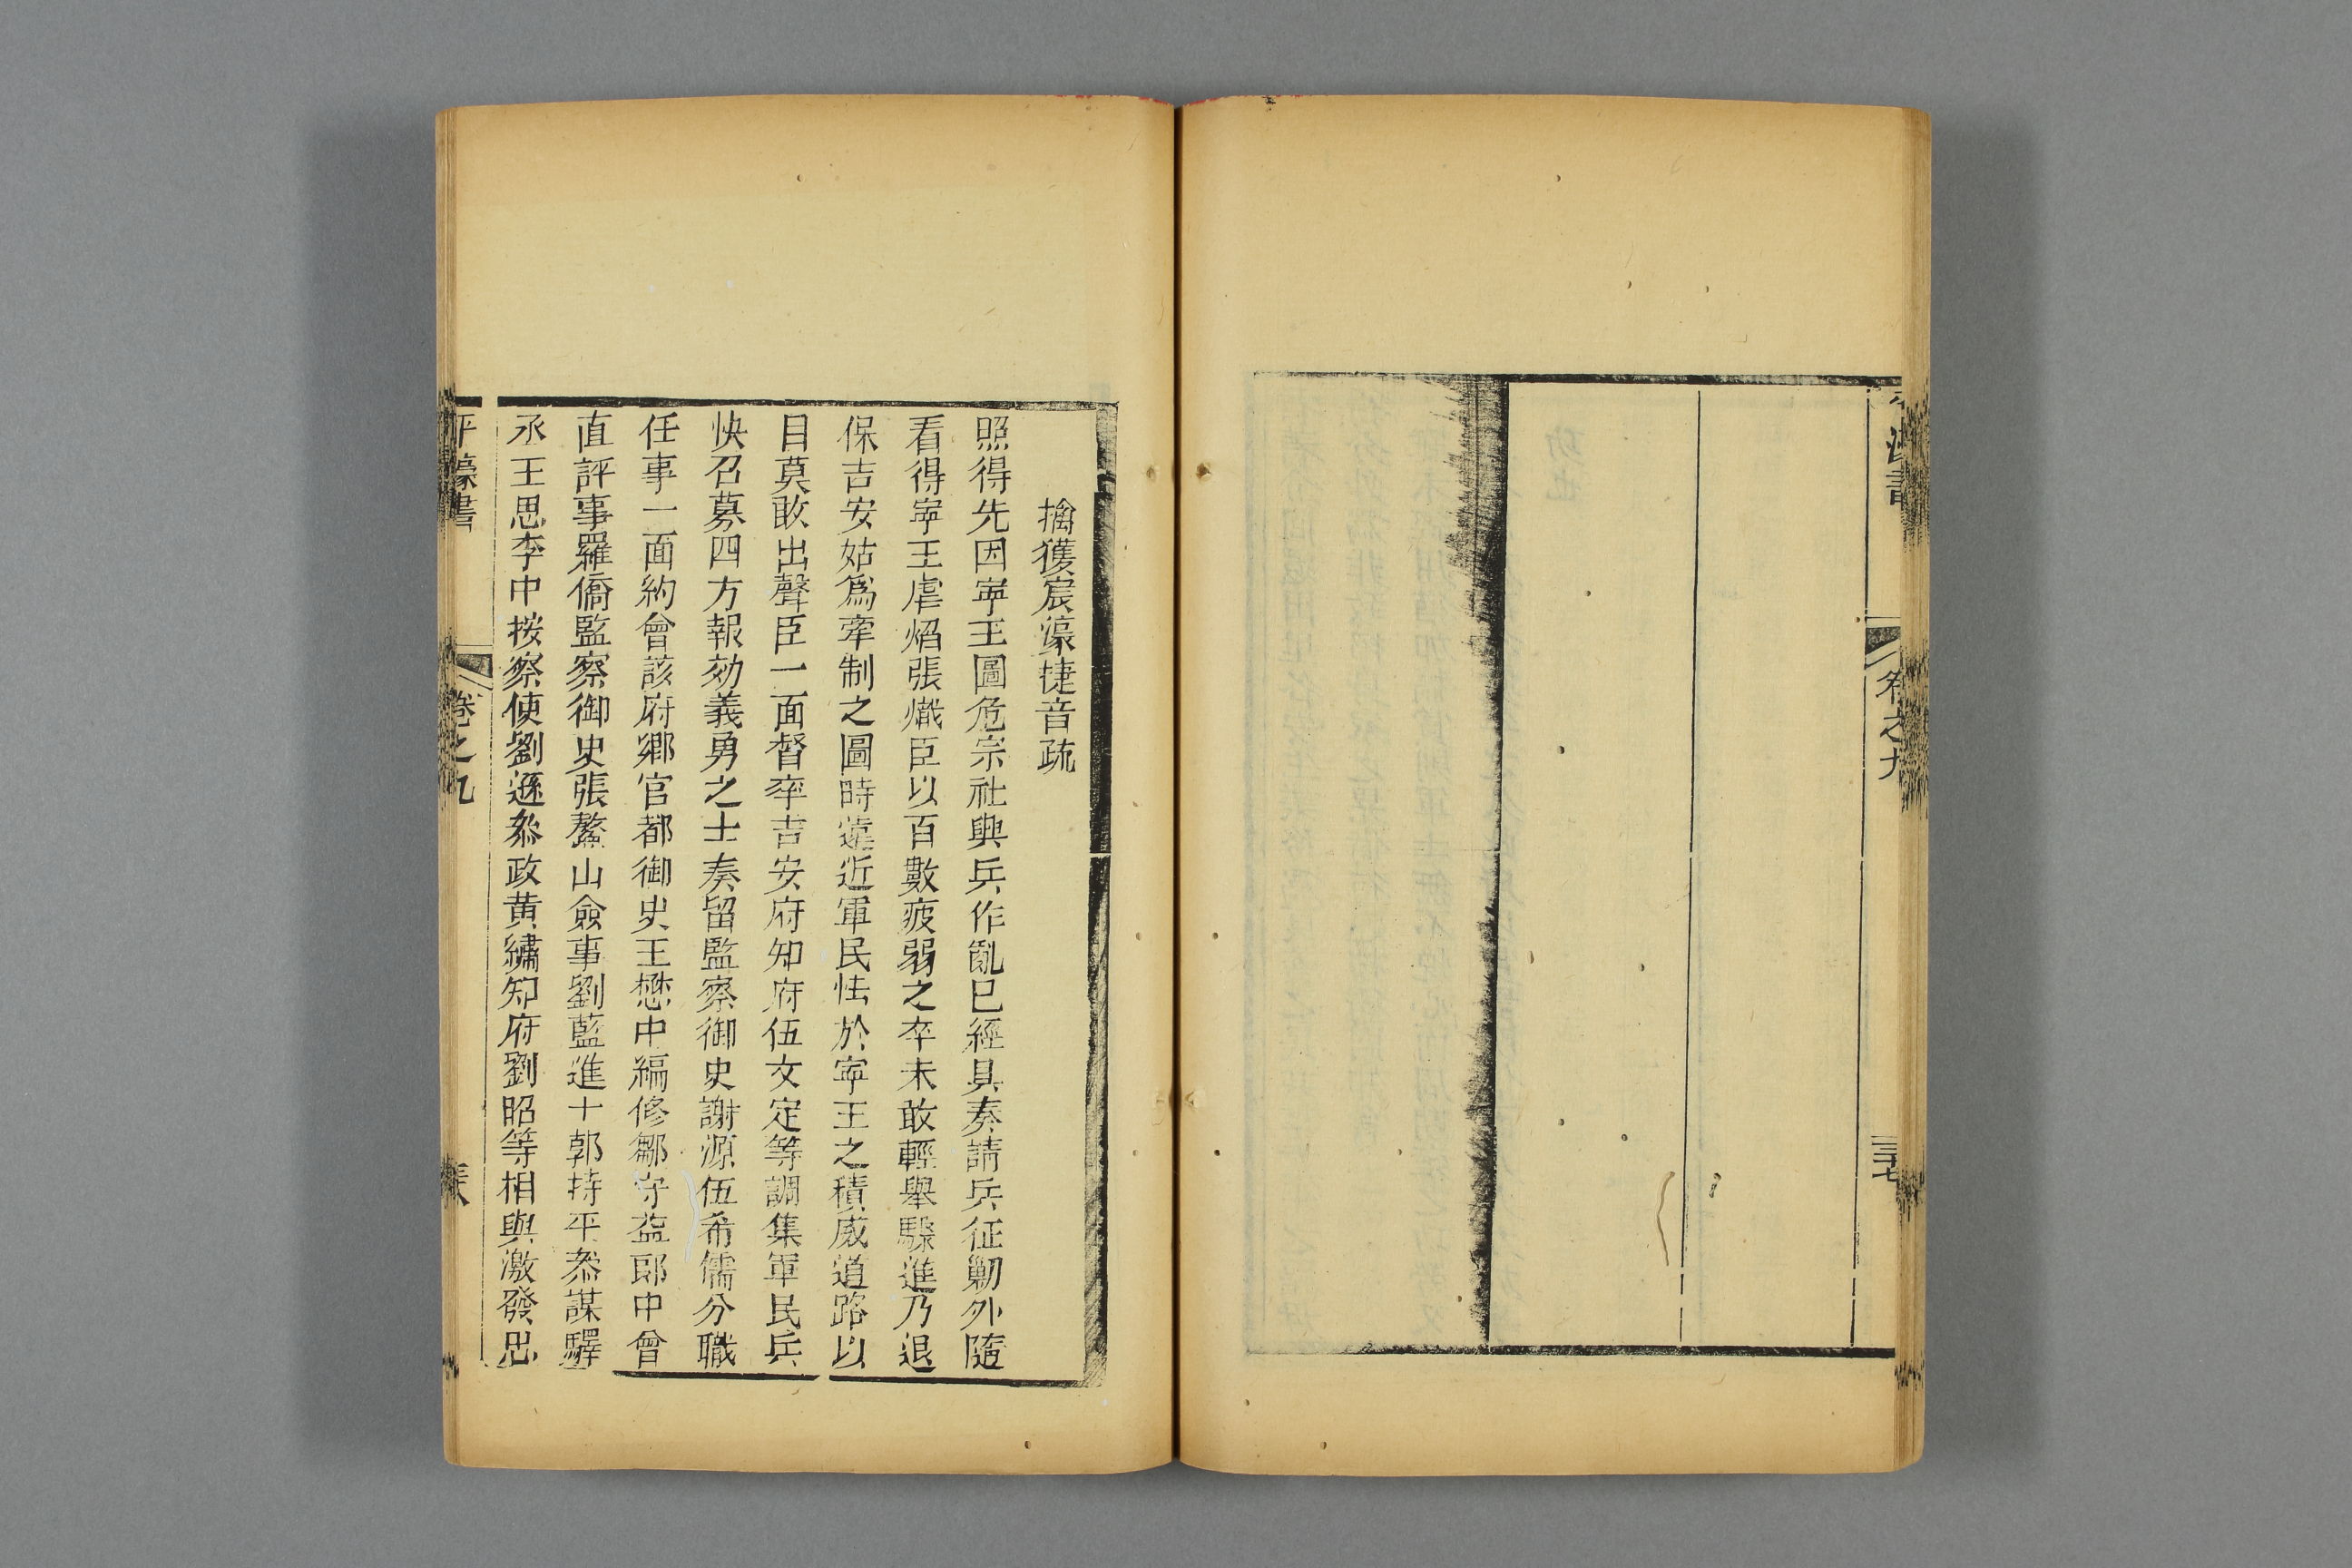 卷之九
三十七
擒獲宸濠捷音疏
照得先因寧王圖危宗社興兵作亂已經具奏請兵征勦外隨
看得寧王虐焰張熾臣以百數疲弱之卒未敢輕舉驟進乃退
保吉安姑爲牽制之圖時遠近軍民怯於寧王之積威道路以
目莫敢出聲臣一面督率吉安府知府伍文定等調集軍民兵
快召募四方報効義勇之士奏留監察御史謝源伍希儒分職
任事一面約會該府鄉官都御史王懋中編修鄒守益郎中曾
直評事羅僑監察御史張鰲山僉事劉藍進士郭持平叅謀驛
丞王思李中按察使劉遜叅政黄繡知府劉昭等相與激發忠
平濠書
卷之九